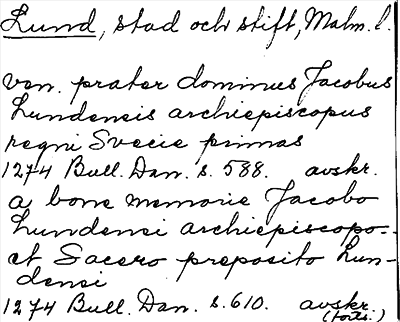 Lund, stad och stift, Malm. l.
ven. prater dominus Jacobus
Lundensis archiepiscopus
regni Svecie primas
1274 Bull. Dan. s. 588. avskr.
a bone memorie Jacobo
Lundensi archiepiscopo -
et Sacero preposito Lun-
densi
1274 Bull. Dan. s. 610. avskr.
(forts.)